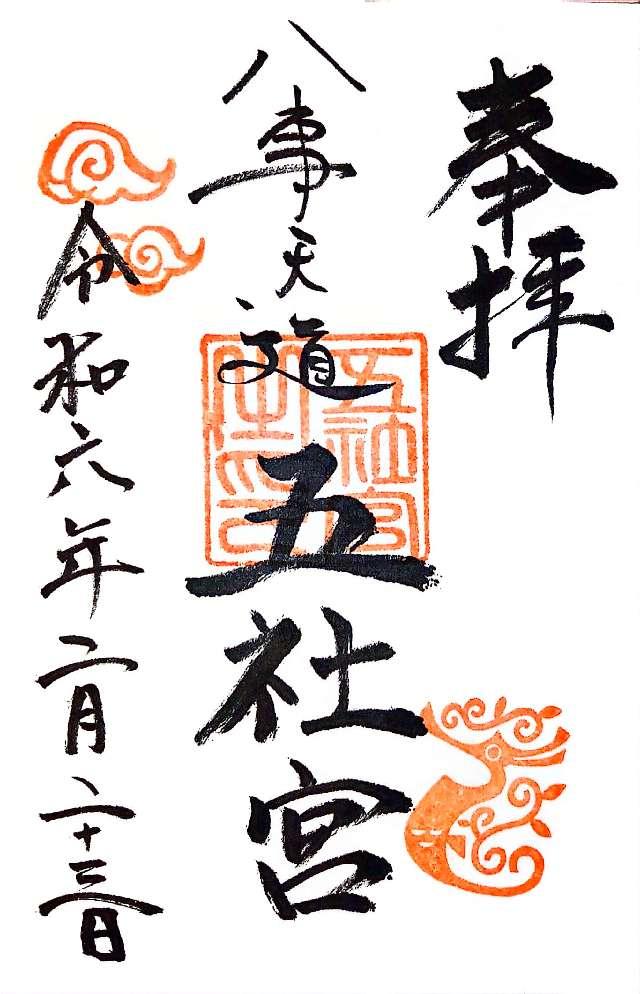 奉拝
八事天道
五社宮
五社宮
令和六年二月二十三日